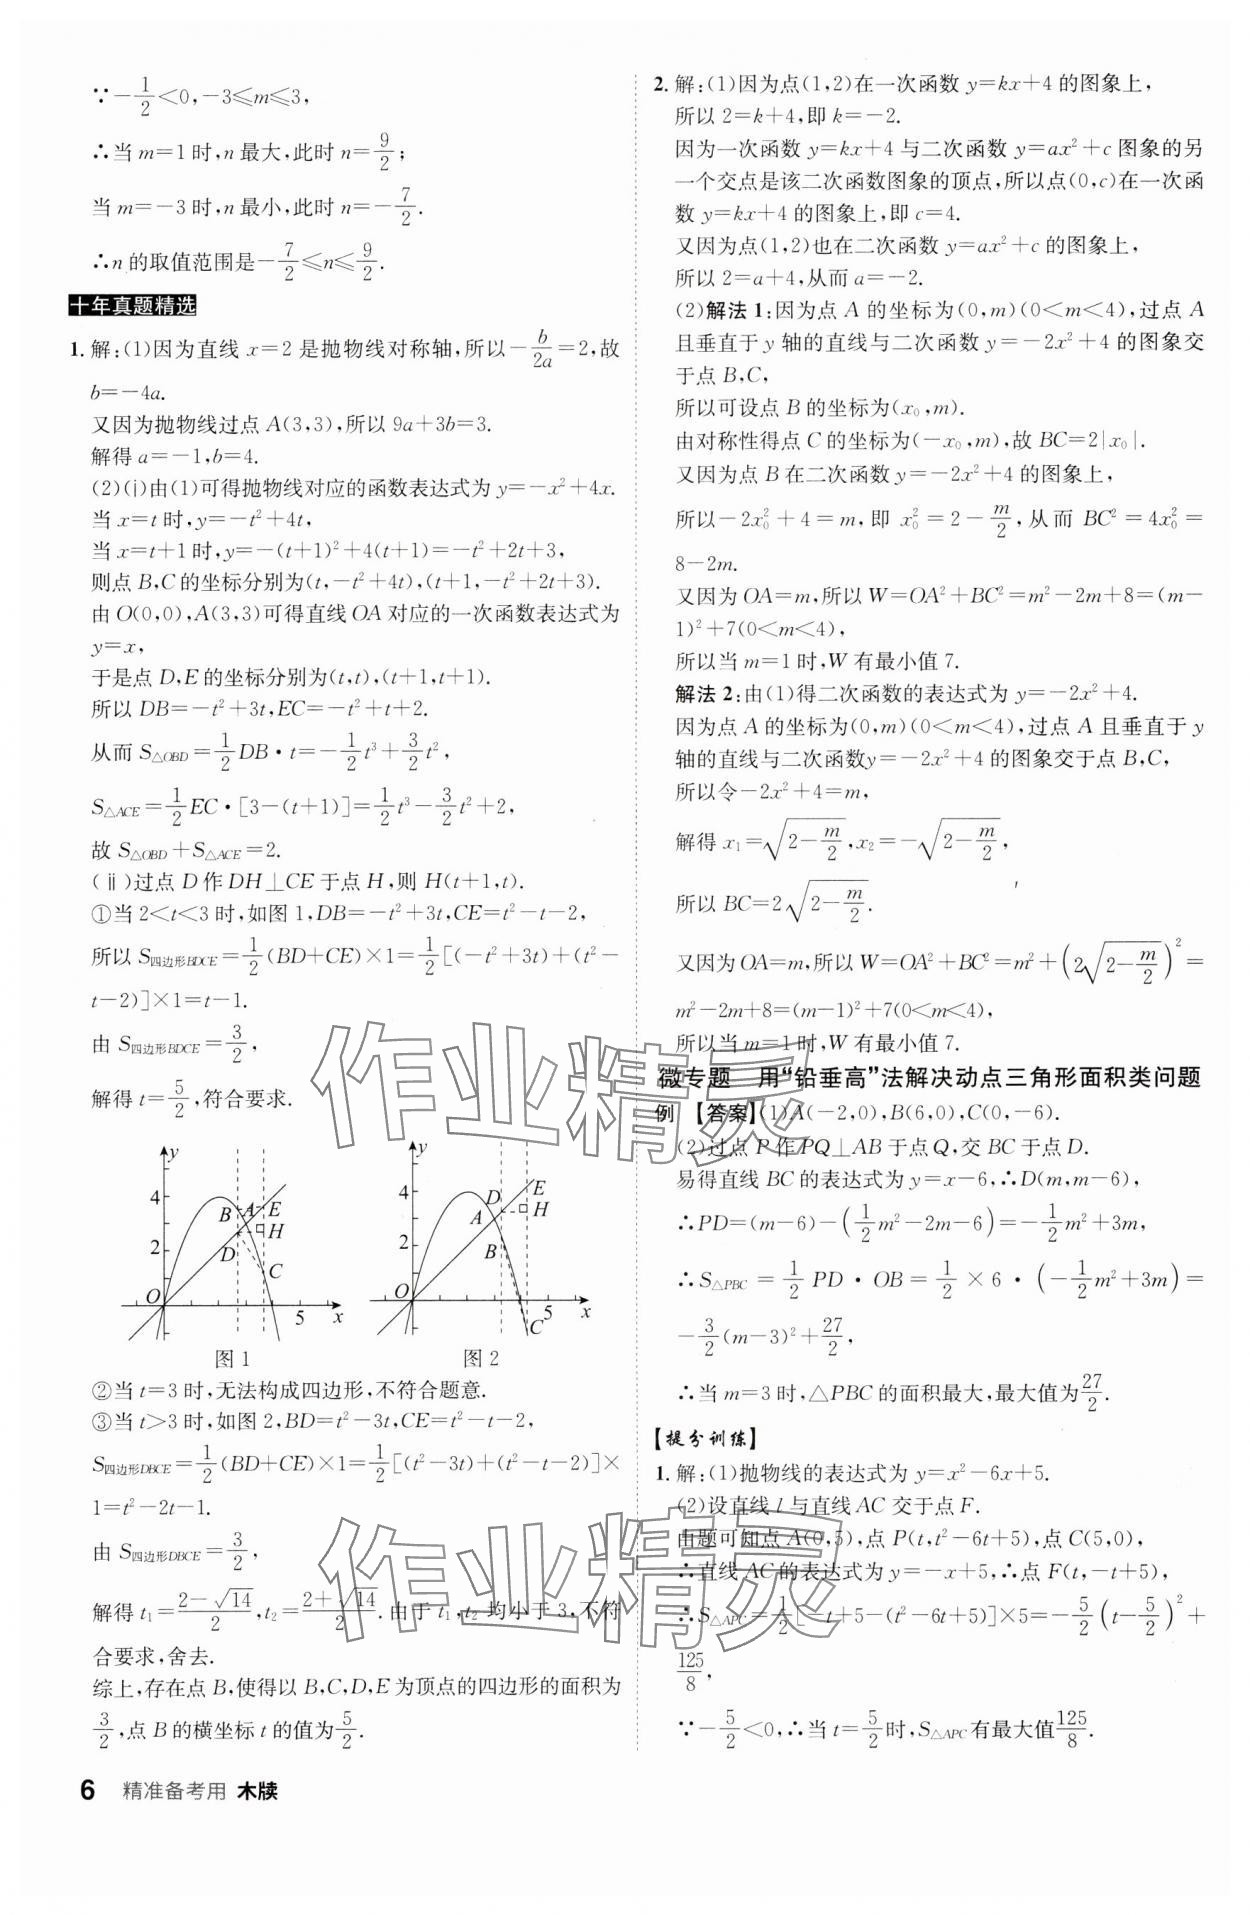 ∵-1/2<0,-3≤m≤3,
∴当 m=1 时,n 最大,此时 n=9/2;
当 m=-3 时,n 最小,此时 n=-7/2.
∴n 的取值范围是-7/2≤n≤9/2.
十年真题精选
1. 解:(1)因为直线 x=2 是抛物线对称轴,所以-b/2a=2,故
b=-4a.
又因为抛物线过点 A(3,3),所以 9a+3b=3.
解得 a=-1,b=4.
(2)(ⅰ)由(1)可得抛物线对应的函数表达式为 y=-x²+4x.
当 x=t 时,y=-t²+4t,
当 x=t+1 时,y=-(t+1)²+4(t+1)=-t²+2t+3,
则点 B,C 的坐标分别为(t,-t²+4t),(t+1,-t²+2t+3).
由 O(0,0),A(3,3)可得直线 OA 对应的一次函数表达式为
y=x,
于是点 D,E 的坐标分别为(t,t),(t+1,t+1).
所以 DB=-t²+3t,EC=-t²+t+2.
从而 S△OBD=1/2DB·t=-1/2t³+3/2t²,
S△ACE=1/2EC·[3-(t+1)]=1/2t³-3/2t²+2,
故 S△OBD+S△ACE=2.
(ⅱ)过点 D 作 DH⊥CE 于点 H,则 H(t+1,t).
①当 2<t<3 时,如图 1,DB=-t²+3t,CE=t²-t-2,
所以 S四边形BDCE=1/2(BD+CE)×1=1/2[(-t²+3t)+(t²-
t-2)]×1=t-1.
由 S四边形BDCE=3/2,
解得 t=5/2,符合要求.
y 4 2 O 5 x B A E H D C
图 1
y 4 2 O 5 x D E A H B C
图 2
②当 t=3 时,无法构成四边形,不符合题意.
③当 t>3 时,如图 2,BD=t²-3t,CE=t²-t-2,
S四边形DBCE=1/2(BD+CE)×1=1/2[(t²-3t)+(t²-t-2)]×
1=t²-2t-1.
由 S四边形DBCE=3/2,
解得 t₁=(2-√14)/2,t₂=(2+√14)/2.由于 t₁,t₂ 均小于 3,不符
合要求,舍去.
综上,存在点 B,使得以 B,C,D,E 为顶点的四边形的面积为
3/2,点 B 的横坐标 t 的值为5/2.
6 精准备考用 木牍
2. 解:(1)因为点(1,2)在一次函数 y=kx+4 的图象上,
所以 2=k+4,即 k=-2.
因为一次函数 y=kx+4 与二次函数 y=ax²+c 图象的另
一个交点是该二次函数图象的顶点,所以点(0,c)在一次函
数 y=kx+4 的图象上,即 c=4.
又因为点(1,2)也在二次函数 y=ax²+c 的图象上,
所以 2=a+4,从而 a=-2.
(2)解法 1:因为点 A 的坐标为(0,m)(0<m<4),过点 A
且垂直于 y 轴的直线与二次函数 y=-2x²+4 的图象交
于点 B,C,
所以可设点 B 的坐标为(x₀,m).
由对称性得点 C 的坐标为(-x₀,m),故 BC=2|x₀|.
又因为点 B 在二次函数 y=-2x²+4 的图象上,
所以-2x₀²+4=m,即 x₀²=2-m/2,从而 BC²=4x₀²=
8-2m.
又因为 OA=m,所以 W=OA²+BC²=m²-2m+8=(m-
1)²+7(0<m<4),
所以当 m=1 时,W 有最小值 7.
解法 2:由(1)得二次函数的表达式为 y=-2x²+4.
因为点 A 的坐标为(0,m)(0<m<4),过点 A 且垂直于 y
轴的直线与二次函数y=-2x²+4 的图象交于点 B,C,
所以令-2x²+4=m,
解得 x₁=√(2-m/2),x₂=-√(2-m/2),
所以 BC=2√(2-m/2).
又因为 OA=m,所以 W=OA²+BC²=m²+(2√(2-m/2))²=
m²-2m+8=(m-1)²+7(0<m<4),
所以当 m=1 时,W 有最小值 7.
微专题 用“铅垂高”法解决动点三角形面积类问题
例 【答案】(1)A(-2,0),B(6,0),C(0,-6).
(2)过点 P 作 PQ⊥AB 于点 Q,交 BC 于点 D.
易得直线 BC 的表达式为 y=x-6,∴D(m,m-6),
∴PD=(m-6)-(1/2m²-2m-6)=-1/2m²+3m,
∴S△PBC=1/2PD·OB=1/2×6·(-1/2m²+3m)=
-3/2(m-3)²+27/2,
∴当 m=3 时,△PBC 的面积最大,最大值为27/2.
【提分训练】
1. 解:(1)抛物线的表达式为 y=x²-6x+5.
(2)设直线 l 与直线 AC 交于点 F.
由题可知点 A(0,5),点 P(t,t²-6t+5),点 C(5,0),
∴直线 AC 的表达式为 y=-x+5,∴点 F(t,-t+5),
∴S△APC=1/2[-t+5-(t²-6t+5)]×5=-5/2(t-5/2)²+
125/8,
∵-5/2<0,∴当 t=5/2时,S△APC有最大值125/8.
作业精灵
作业精灵